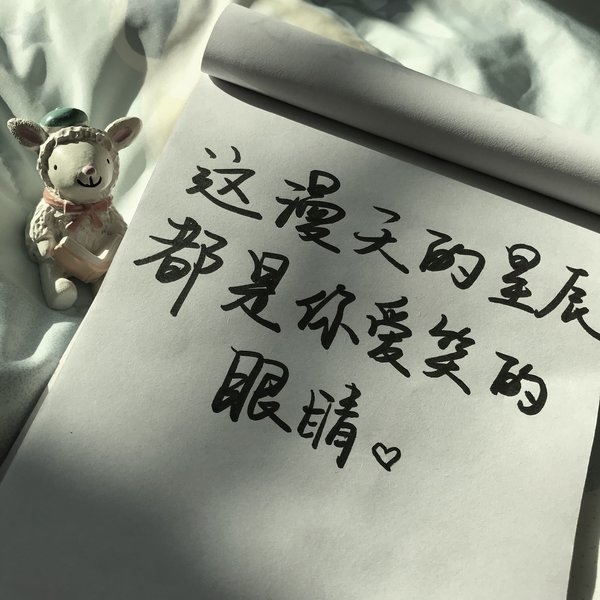 这漫天的星辰
都是你爱笑的
眼睛♡